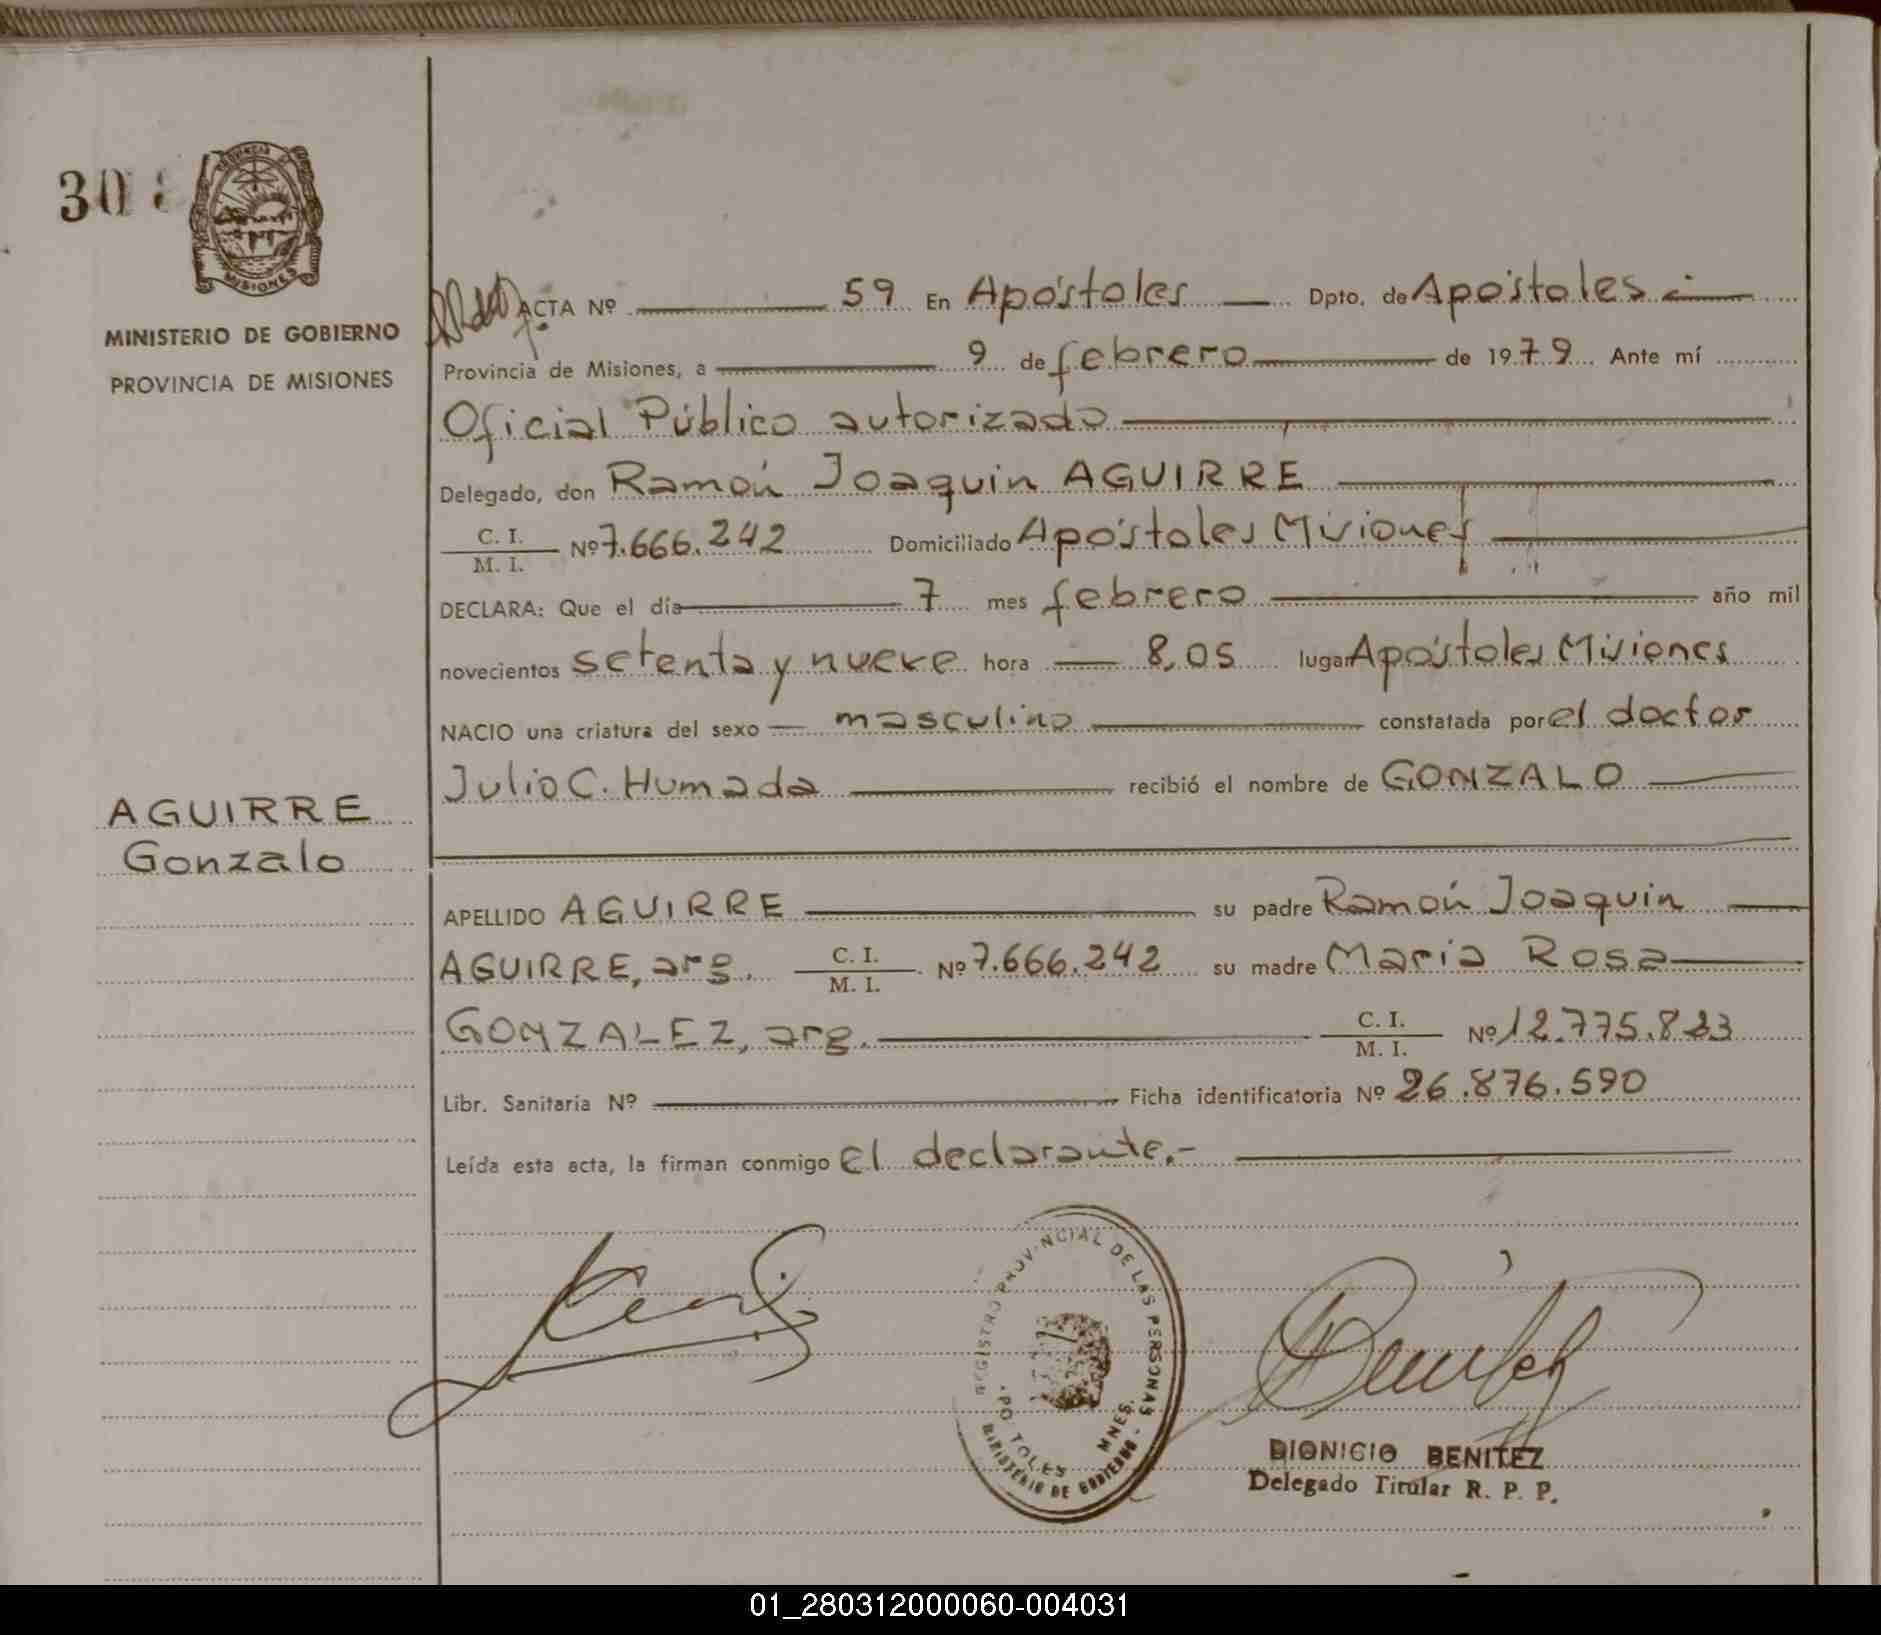 30
PROVINCIA DE
MISIONES
MINISTERIO DE GOBIERNO
PROVINCIA DE MISIONES
ACTA Nº 59 En Apóstoles Dpto. de Apóstoles
Provincia de Misiones, a 9 de febrero de 1979 Ante mí
Oficial Público autorizado
Delegado, don Ramón Joaquin AGUIRRE
C. I.
M. I. Nº 7.666.242 Domiciliado Apóstoles Misiones
DECLARA: Que el día 7 mes febrero año mil
novecientos setenta y nueve hora 8,05 lugar Apóstoles Misiones
NACIO una criatura del sexo masculino constatada por el doctor
Julio C. Humada recibió el nombre de GONZALO
AGUIRRE
Gonzalo
APELLIDO AGUIRRE su padre Ramón Joaquin
AGUIRRE, arg. C. I.
M. I. Nº 7.666.242 su madre Maria Rosa
GONZALEZ, arg. C. I.
M. I. Nº 12.775.823
Libr. Sanitaria Nº Ficha identificatoria Nº 26.876.590
Leída esta acta, la firman conmigo el declarante.-
REGISTRO PROVINCIAL DE LAS PERSONAS
MINISTERIO DE GOBIERNO
MNES.
DIONICIO BENITEZ
Delegado Titular R. P. P.
01_280312000060-004031